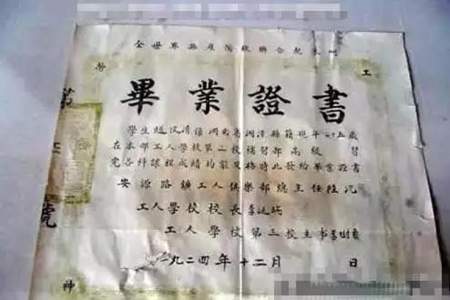 全世界無產階級聯合起來
勞 工
畢業證書
學生 清係湖南省 縣籍現年廿五歲
在本部工人學校第 校補習部高級 習
完各科課程成績均能及格特此發給畢業證書
安源路礦工人俱樂部總主任陸沉
工人學校校長
工人學校第三校主事
一九二四年十二月 日
第 號
神